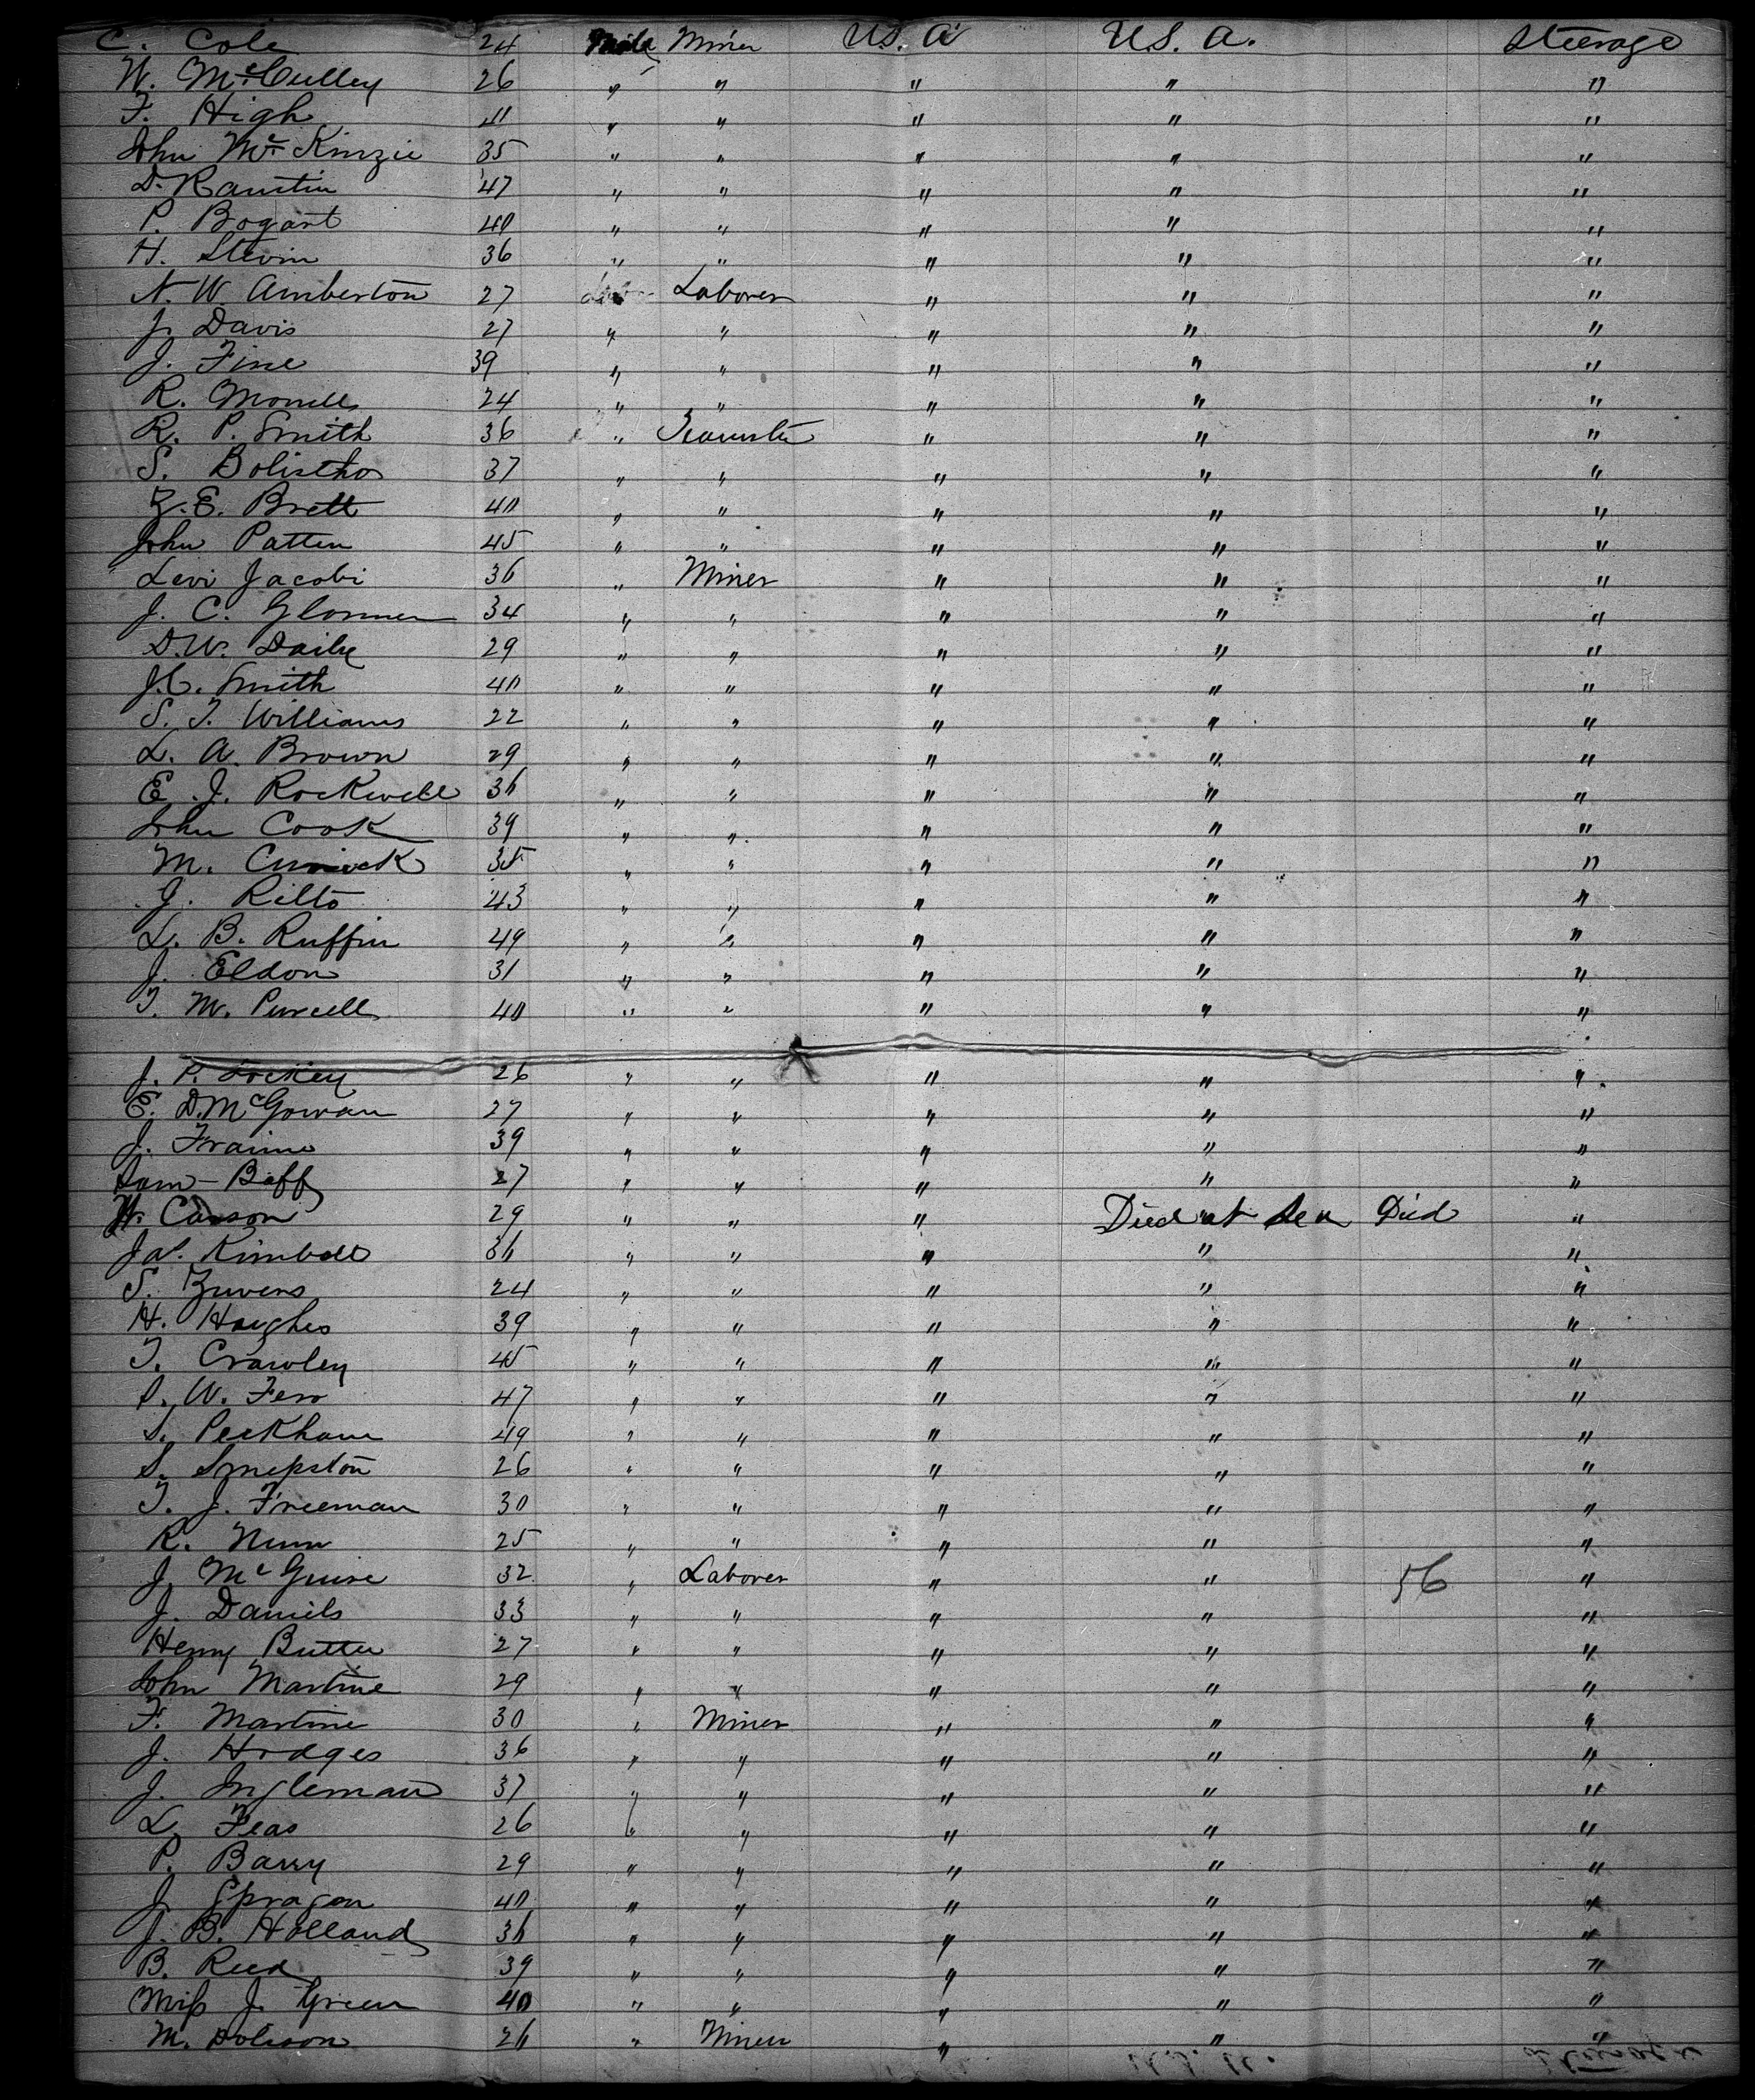 C. Cole 24 Male Miner U.S. A U.S. A. Steerage
W. McCulley 26 " " " " "
F. High 41 " " " " "
John McKinzie 35 " " " " "
D. Raustin 47 " " " " "
P. Bogart 40 " " " " "
H. Stevin 36 " " " " "
N. W. Amberton 27 Laborer " " "
J. Davis 27 " " " " "
J. Fine 39 " " " " "
R. Morrells 24 " " " " "
R. P. Smith 36 " Teamster " " "
S. Bolistho 37 " " " " "
Z. E. Brett 40 " " " " "
John Patten 45 " " " " "
Levi Jacobi 36 " Miner " " "
J. C. Glonner 34 " " " " "
D. W. Daily 29 " " " " "
J. C. Smith 40 " " " " "
S. T. Williams 22 " " " " "
L. A. Brown 29 " " " " "
E. J. Rockwell 36 " " " " "
John Cook 39 " " " " "
M. 35 " " " " "
J. Rilto 43 " " " " "
L. B. Ruffin 49 " " " " "
J. Eldon 31 " " " " "
T. M. Purcell 40 " " " " "
J. P. 26 " " " " "
E. D. McGowan 27 " " " " "
J. Fraime 39 " " " " "
Sam Baff 27 " " " " "
W. Carson 29 " " " Died at Sea Died "
Jas. Kimball 36 " " " " "
S. Zuvens 24 " " " " "
H. Hughes 39 " " " " "
T. Crawley 45 " " " " "
S. W. Fero 47 " " " " "
S. Peckham 49 " " " " "
S. Smepston 26 " " " " "
T. J. Freeman 30 " " " " "
R. Nunn 25 " " " " "
J. McGuire 32 " Laborer " " 56 "
J. Daniels 33 " " " " "
Henry Butter 27 " " " " "
John Martine 29 " " " " "
F. Martine 30 " Miner " " "
J. Hodges 36 " " " " "
J. Ingleman 37 " " " " "
L. Feas 26 " " " " "
P. Barry 29 " " " " "
J. Spragon 40 " " " " "
J. B. Holland 36 " " " " "
B. Reed 39 " " " " "
Miss J. Green 40 " " " " "
M. Dolisson 26 " Miner " " "